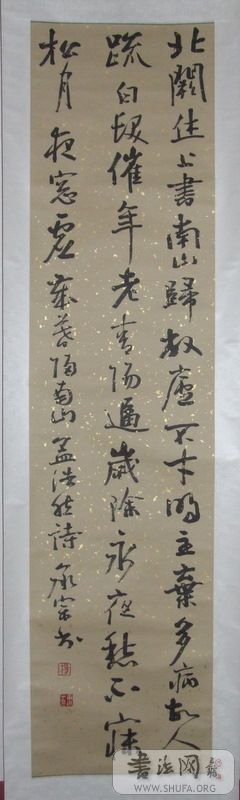 北闕休上書南山歸敝廬不才明主棄多病故人
疏白髮催年老青陽逼歲除永夜愁不寐
松月夜窓虛歲暮归南山孟浩然詩宗书
書法网
WWW.SHUFA.ORG